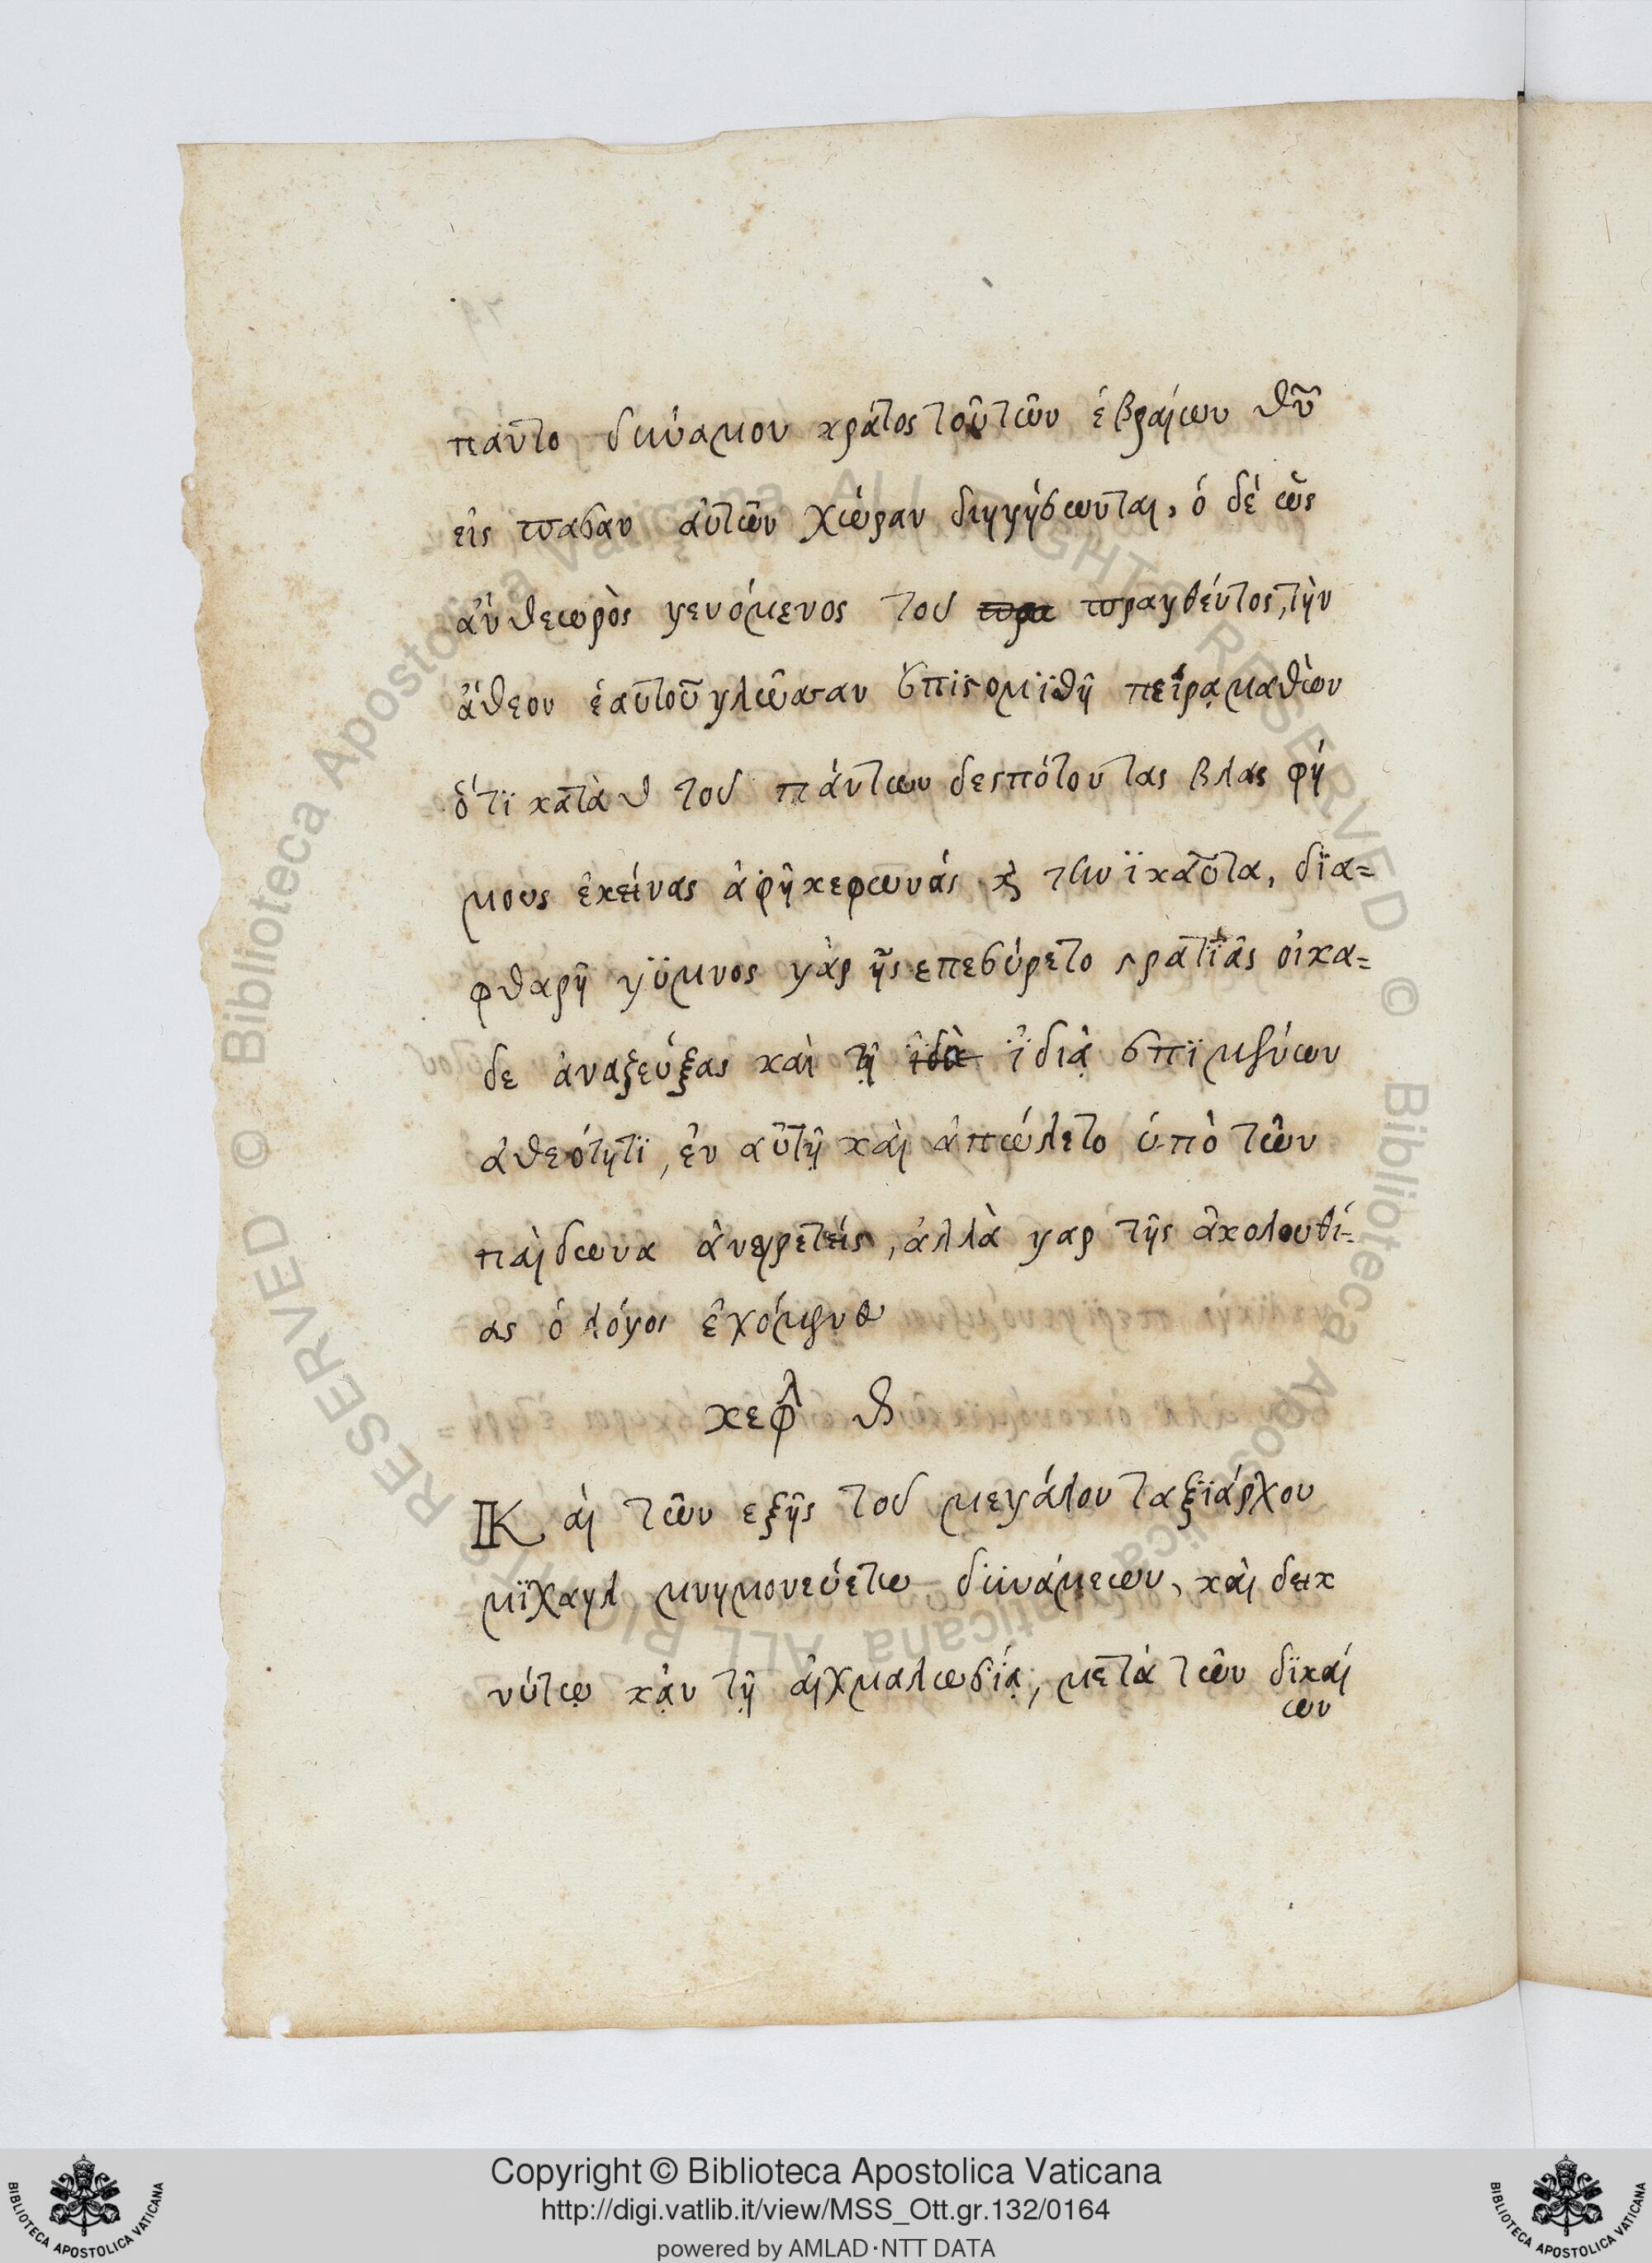 παντο δυναμον κράτος τοῦ τῶν ἑβραίων θῦ
εἰς πασαν αὐτῶν χώραν διηγήσωνται, ὁ δέ ὡς
ἀνθεωρὸς γενόμενος τοῦ πραγθέντος, τὴν
ἄθεον ἑαυτοῦ γλῶσσαν ἐπιστομϊθῆ πείρᾳ μαθὼν
ὅτϊ κατὰ τοῦ πάντων δεσπότου τας βλασφή
μους ἐκείνας ἀφῆκε φωνάς ϗ τῶν ϊκαῦτα, δϊα=
φθαρῆ γϋμνος γὰρ ἧς επεσύρετο στρατϊᾶς οἰκα=
δε ἀναζεύξας καὶ τῇ ἰδίᾳ ἐπϊμένων
ἀθεότητϊ, ἐν αὐτῇ καὶ ἀπώλετο ὑπὸ τῶν
παίδων ἀναιρετείς, ἀλλὰ γαρ τῆς ἀκολουθί=
ας ὁ λόγος ἐχόμενος
κεφλ θ
Καὶ τῶν εξῆς τοῦ μεγάλου ταξϊάρχου
μϊχαηλ μνημονευέτω δϋνάμεων, καὶ δεικ
νύτω κἀν τῇ αἰχμαλωσίᾳ, μετά τῶν δϊκαί
ων
Copyright © Biblioteca Apostolica Vaticana
http://digi.vatlib.it/view/MSS_Ott.gr.132/0164
powered by AMLAD·NTT DATA